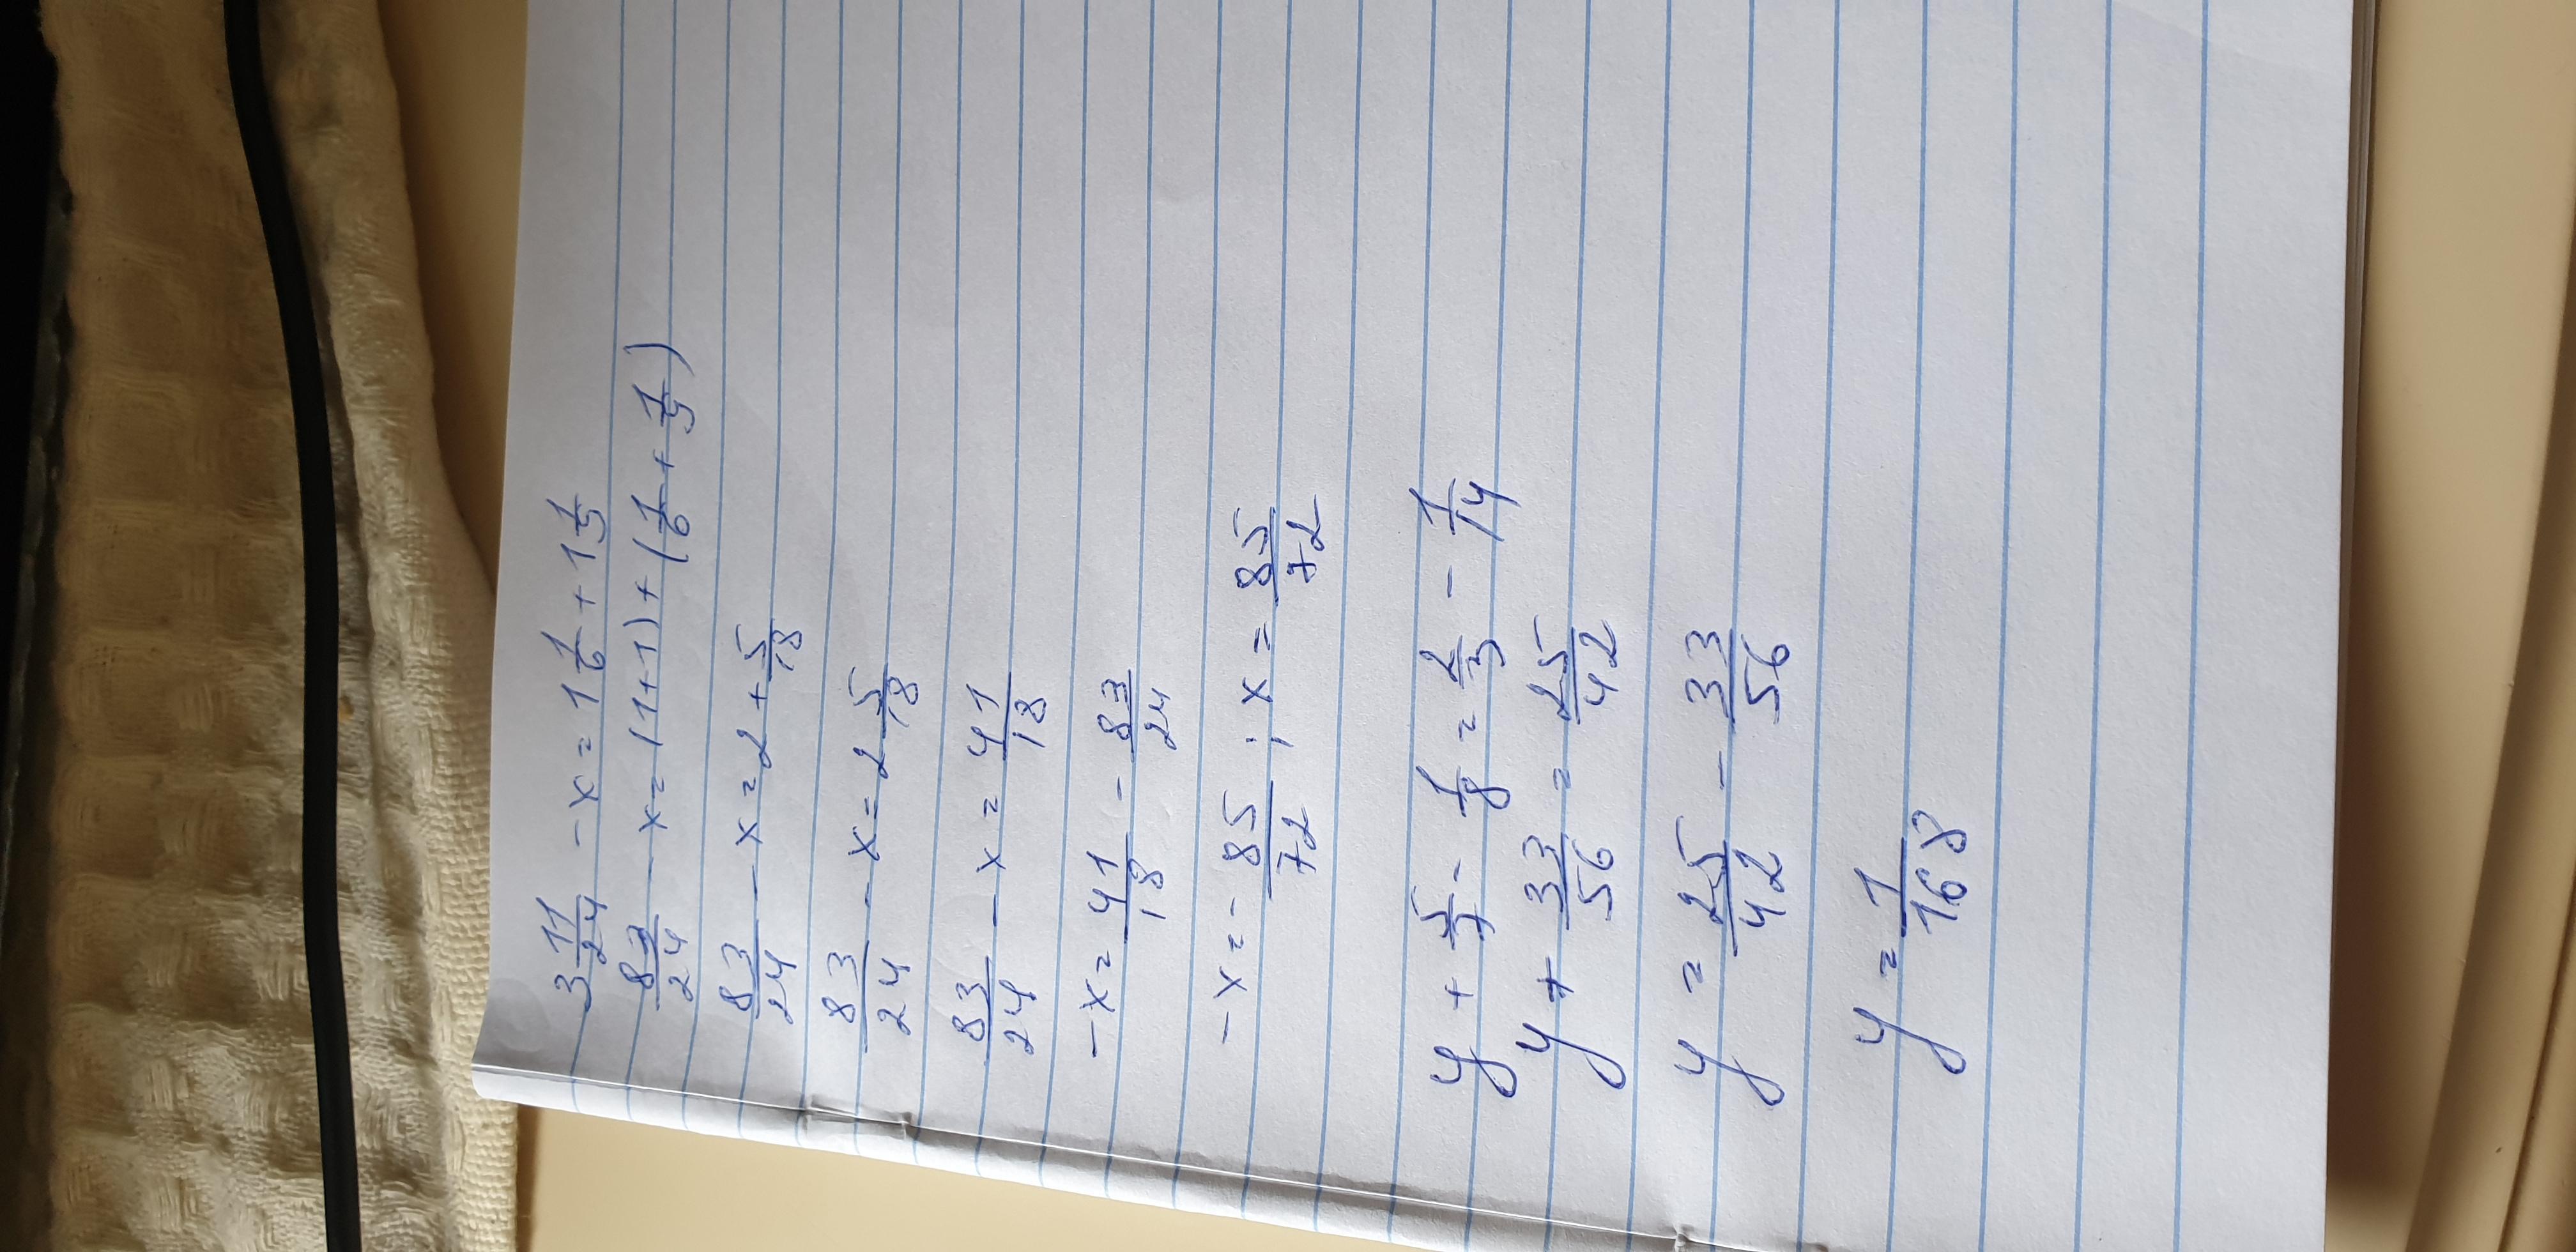 3 11/24 - x = 1 1/6 + 1 1/9
83/24 - x = (1+1) + (1/6 + 1/9)
83/24 - x = 2 + 5/18
83/24 - x = 2 5/18
83/24 - x = 41/18
-x = 41/18 - 83/24
-x = - 85/72 ; x = 85/72
y + 5/7 - 1/8 = 2/3 - 1/14
y + 33/56 = 25/42
y = 25/42 - 33/56
y = 1/168